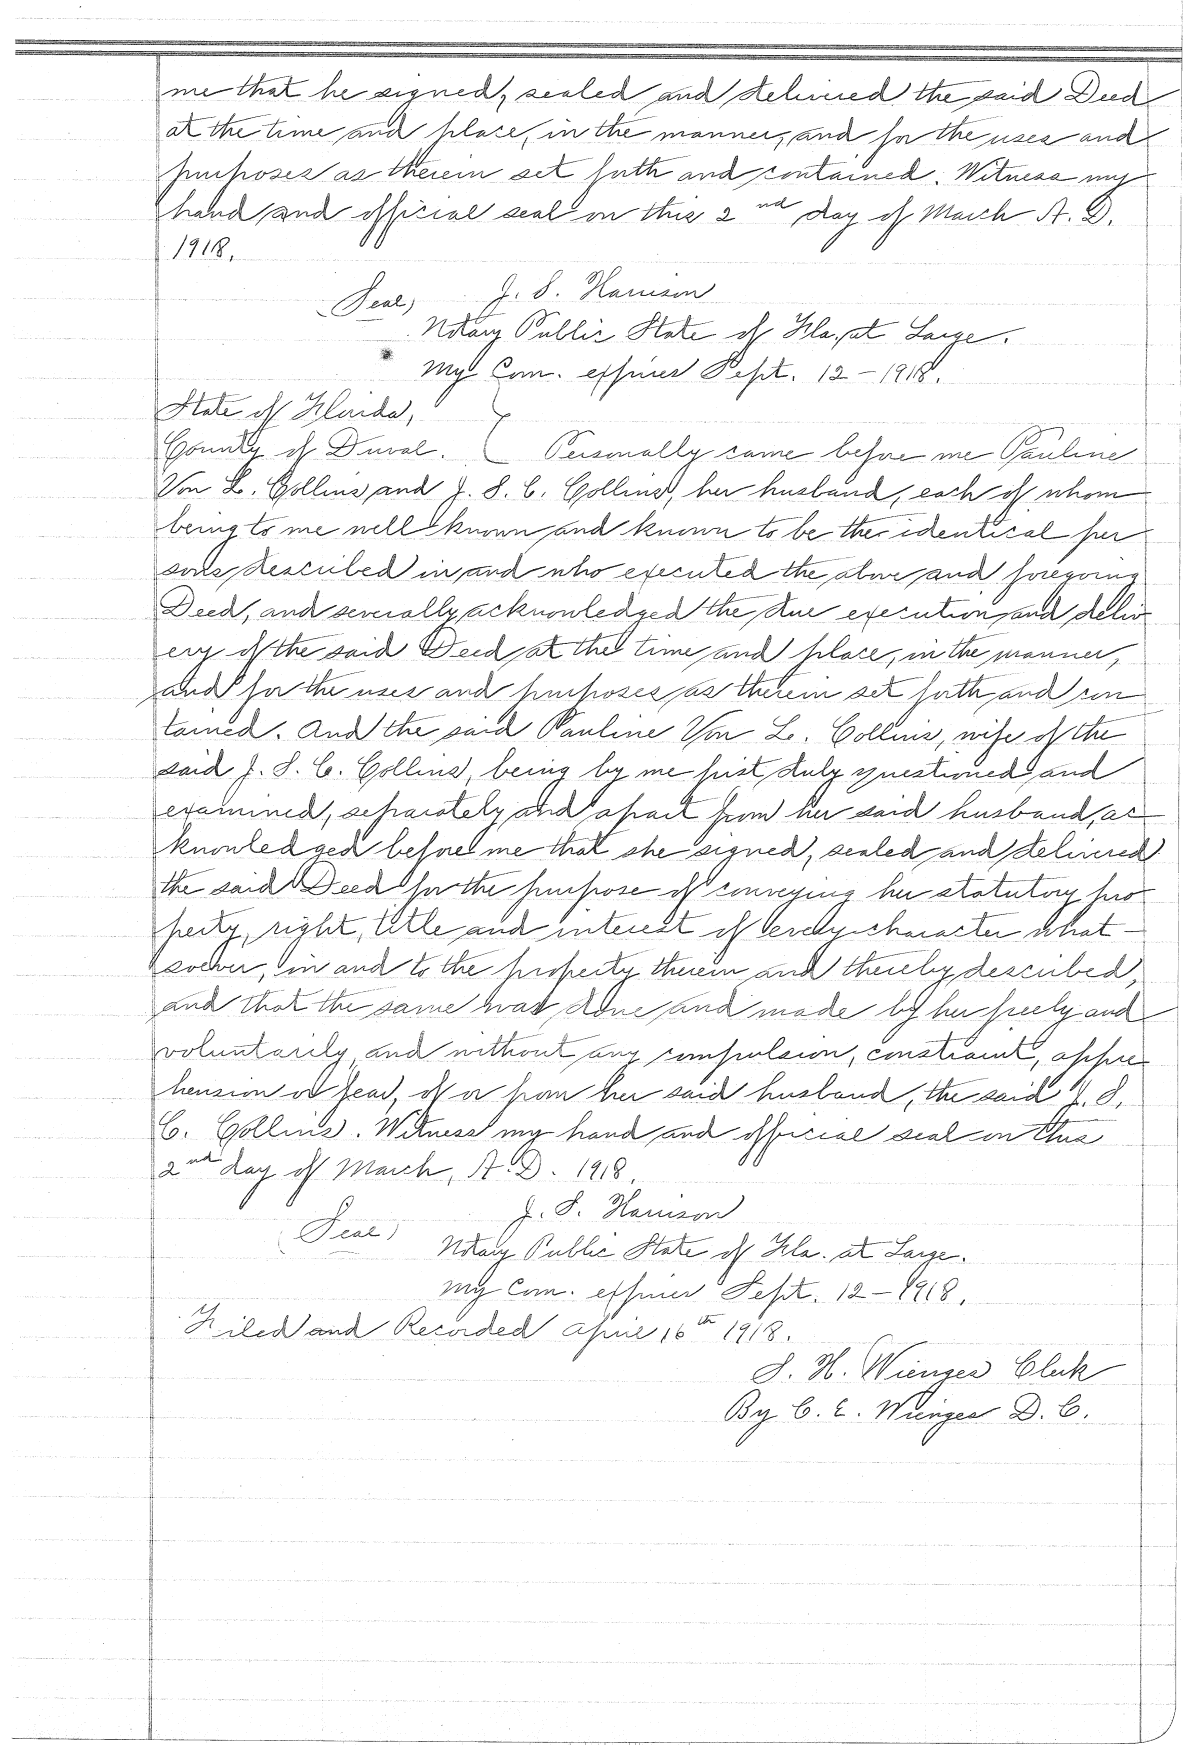 me that he signed, sealed and delivered the said Deed
at the time and place, in the manner, and for the uses and
purposes as therein set forth and contained. Witness my
hand and official seal on this 2nd day of March A. D.
1918.
(Seal) J. S. Harrison
Notary Public State of Fla. at Large.
My Com. expires Sept. 12-1918.
State of Florida,
County of Duval. Personally came before me Pauline
Von L. Collins and J. S. C. Collins, her husband, each of whom
being to me well known and known to be the identical per
sons described in and who executed the above and foregoing
Deed, and severally acknowledged the due execution and deliv
ery of the said Deed at the time and place, in the manner,
and for the uses and purposes as therein set forth and con
tained. And the said Pauline Von L. Collins, wife of the
said J. S. C. Collins, being by me first duly questioned and
examined, separately and apart from her said husband, ac
knowledged before me that she signed, sealed and delivered
the said Deed for the purpose of conveying her statutory pro
perty, right, title and interest of every character what-
soever, in and to the property therein and thereby described,
and that the same was done and made by her freely and
voluntarily, and without any compulsion, constraint, appre
hension or fear, of or from her said husband, the said J. S.
C. Collins. Witness my hand and official seal on this
2nd day of March, A. D. 1918.
(Seal) J. S. Harrison
Notary Public State of Fla. at Large.
My Com. expires Sept. 12-1918.
Filed and Recorded April 16th 1918.
S. H. Wienges Clerk
By C. E. Wienges D. C.